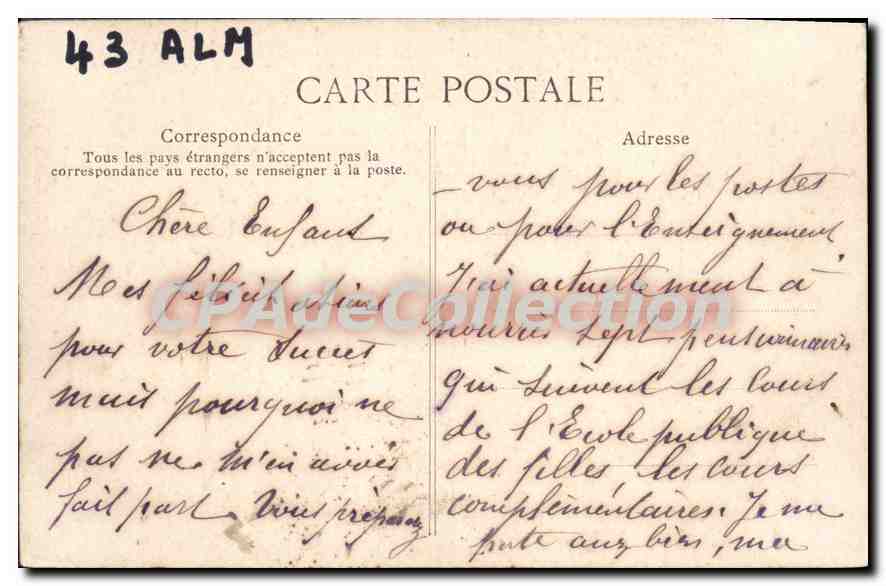 43 ALM
CARTE POSTALE
Correspondance
Tous les pays étrangers n'acceptent pas la
correspondance au recto, se renseigner à la poste.
Chère Enfant
Mes félicitations
pour votre succès
mais pourquoi ne
pas ne m'en avoir
fait part. Vous préparez
Adresse
-vous pour les postes
ou pour l'Enseignement
J'ai actuellement à
nourrir sept pensionnaires
qui suivent les cours
de l'Ecole publique
des filles, les cours
complémentaires. Je me
porte assez bien, ma
CPAdeCollection.com